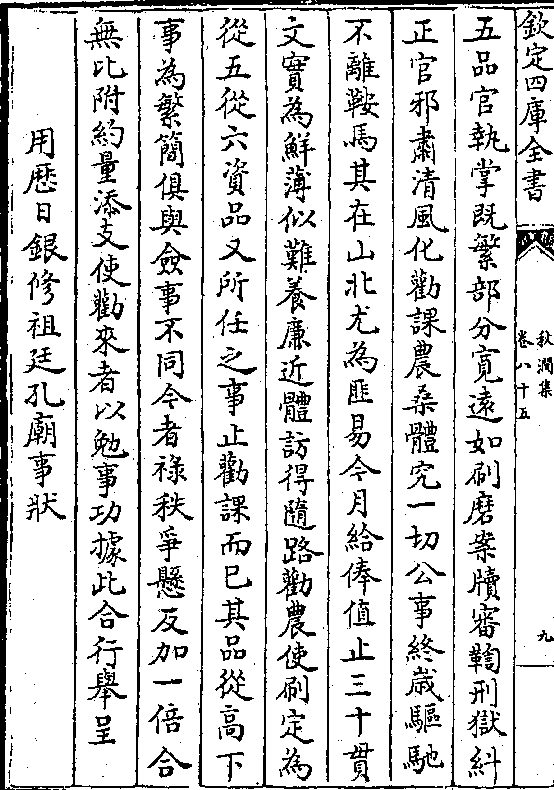 欽定四庫全書
秋澗集
卷八十五
九
五品官執掌既繁部分寛遠如刷磨案牘審鞫刑獄糾
正官邪肅清風化勸課農桑體究一切公事終歳驅馳
不離鞍馬其在山北尤為匪易今月給俸值止三十貫
文實為鮮薄似難養廉近體訪得隨路勸農使刷定為
從五從六資品又所任之事止勸課而已其品從高下
事為繁簡俱與僉事不同今者祿秩爭懸反加一倍合
無比附約量添支使勸來者以勉事功據此合行舉呈
用歴日銀修祖廷孔廟事狀